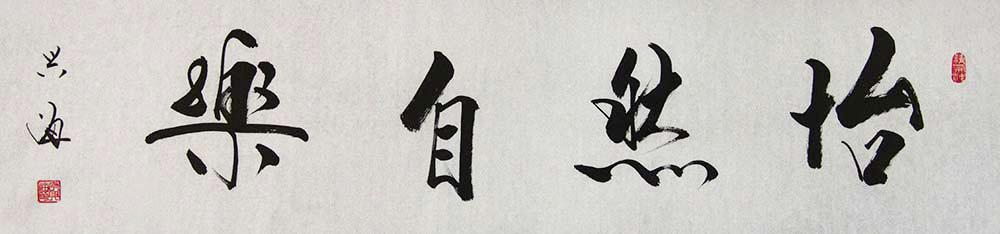 怡然自樂
兴海